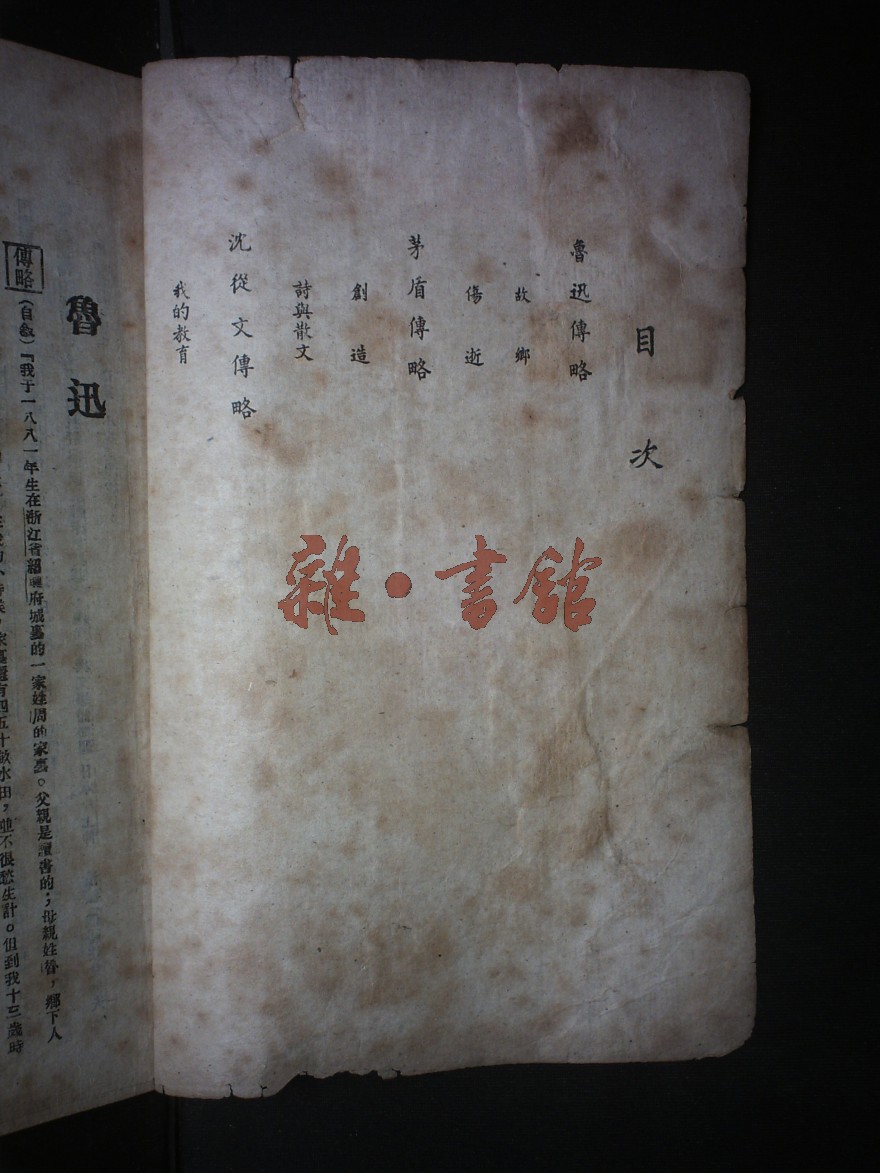 目次
魯迅傳略
故鄉
傷逝
茅盾傳略
創造
詩與散文
沈從文傳略
我的教育
雜·書館
魯迅
傳略
(自敍)『我于一八八一年生在浙江省紹興府城裏的一家姓周的家裏。父親是讀書的;母親姓魯,鄉下人
家裏還有四五十畝水田,並不很愁生計。但到我十三歲時